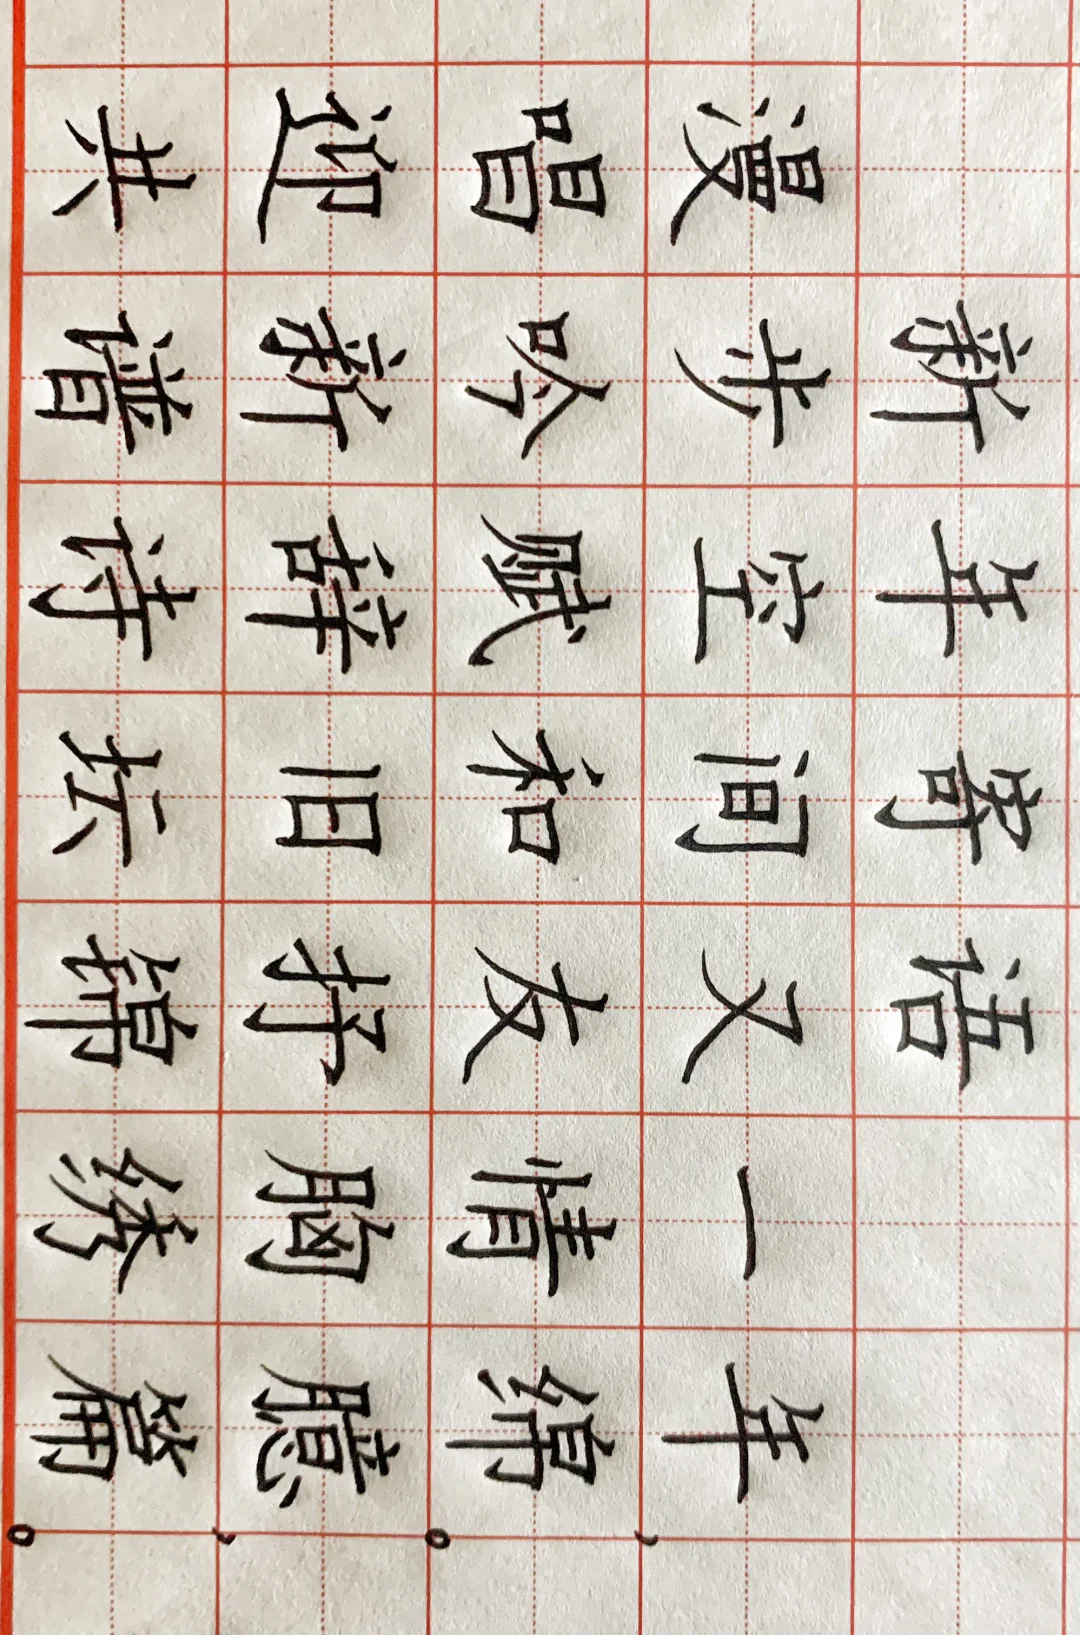 新年寄语
漫步空间又一年，
唱吟赋和友情绵。
迎新辞旧抒胸臆，
共谱诗坛锦绣篇。